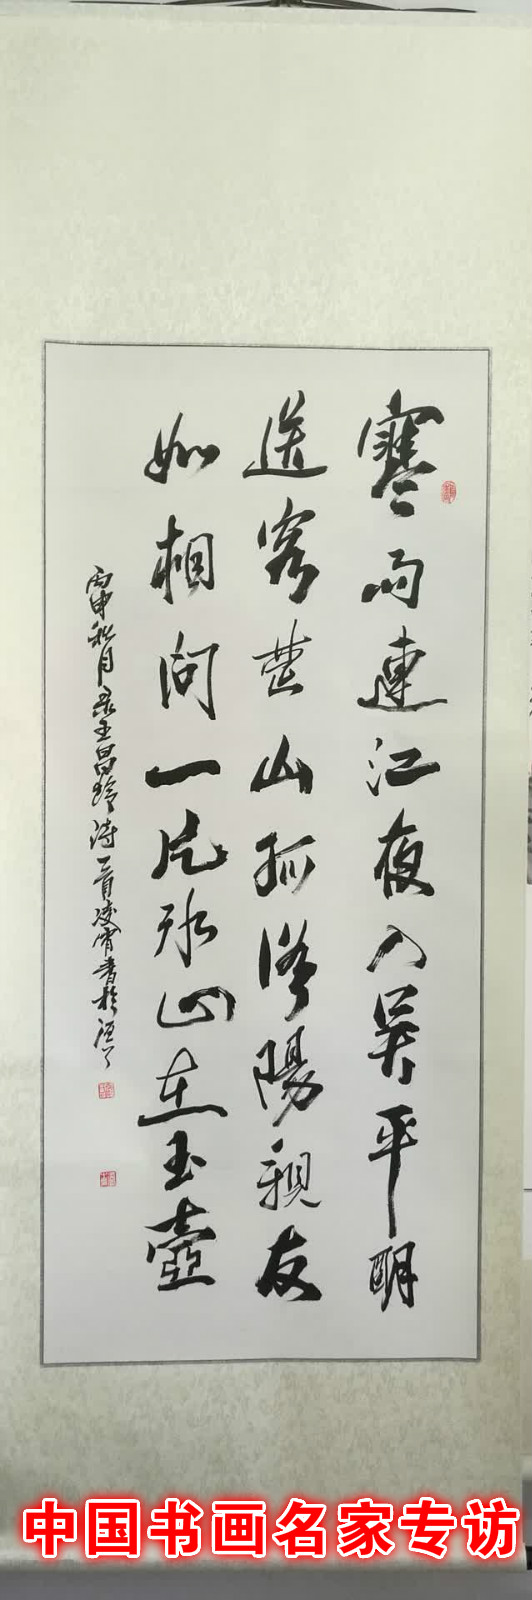 寒雨連江夜入吳平明
送客楚山孤洛陽親友
如相问一片冰心在玉壺
丙申秋月录王昌龄诗一首凌霄书於
中国书画名家专访